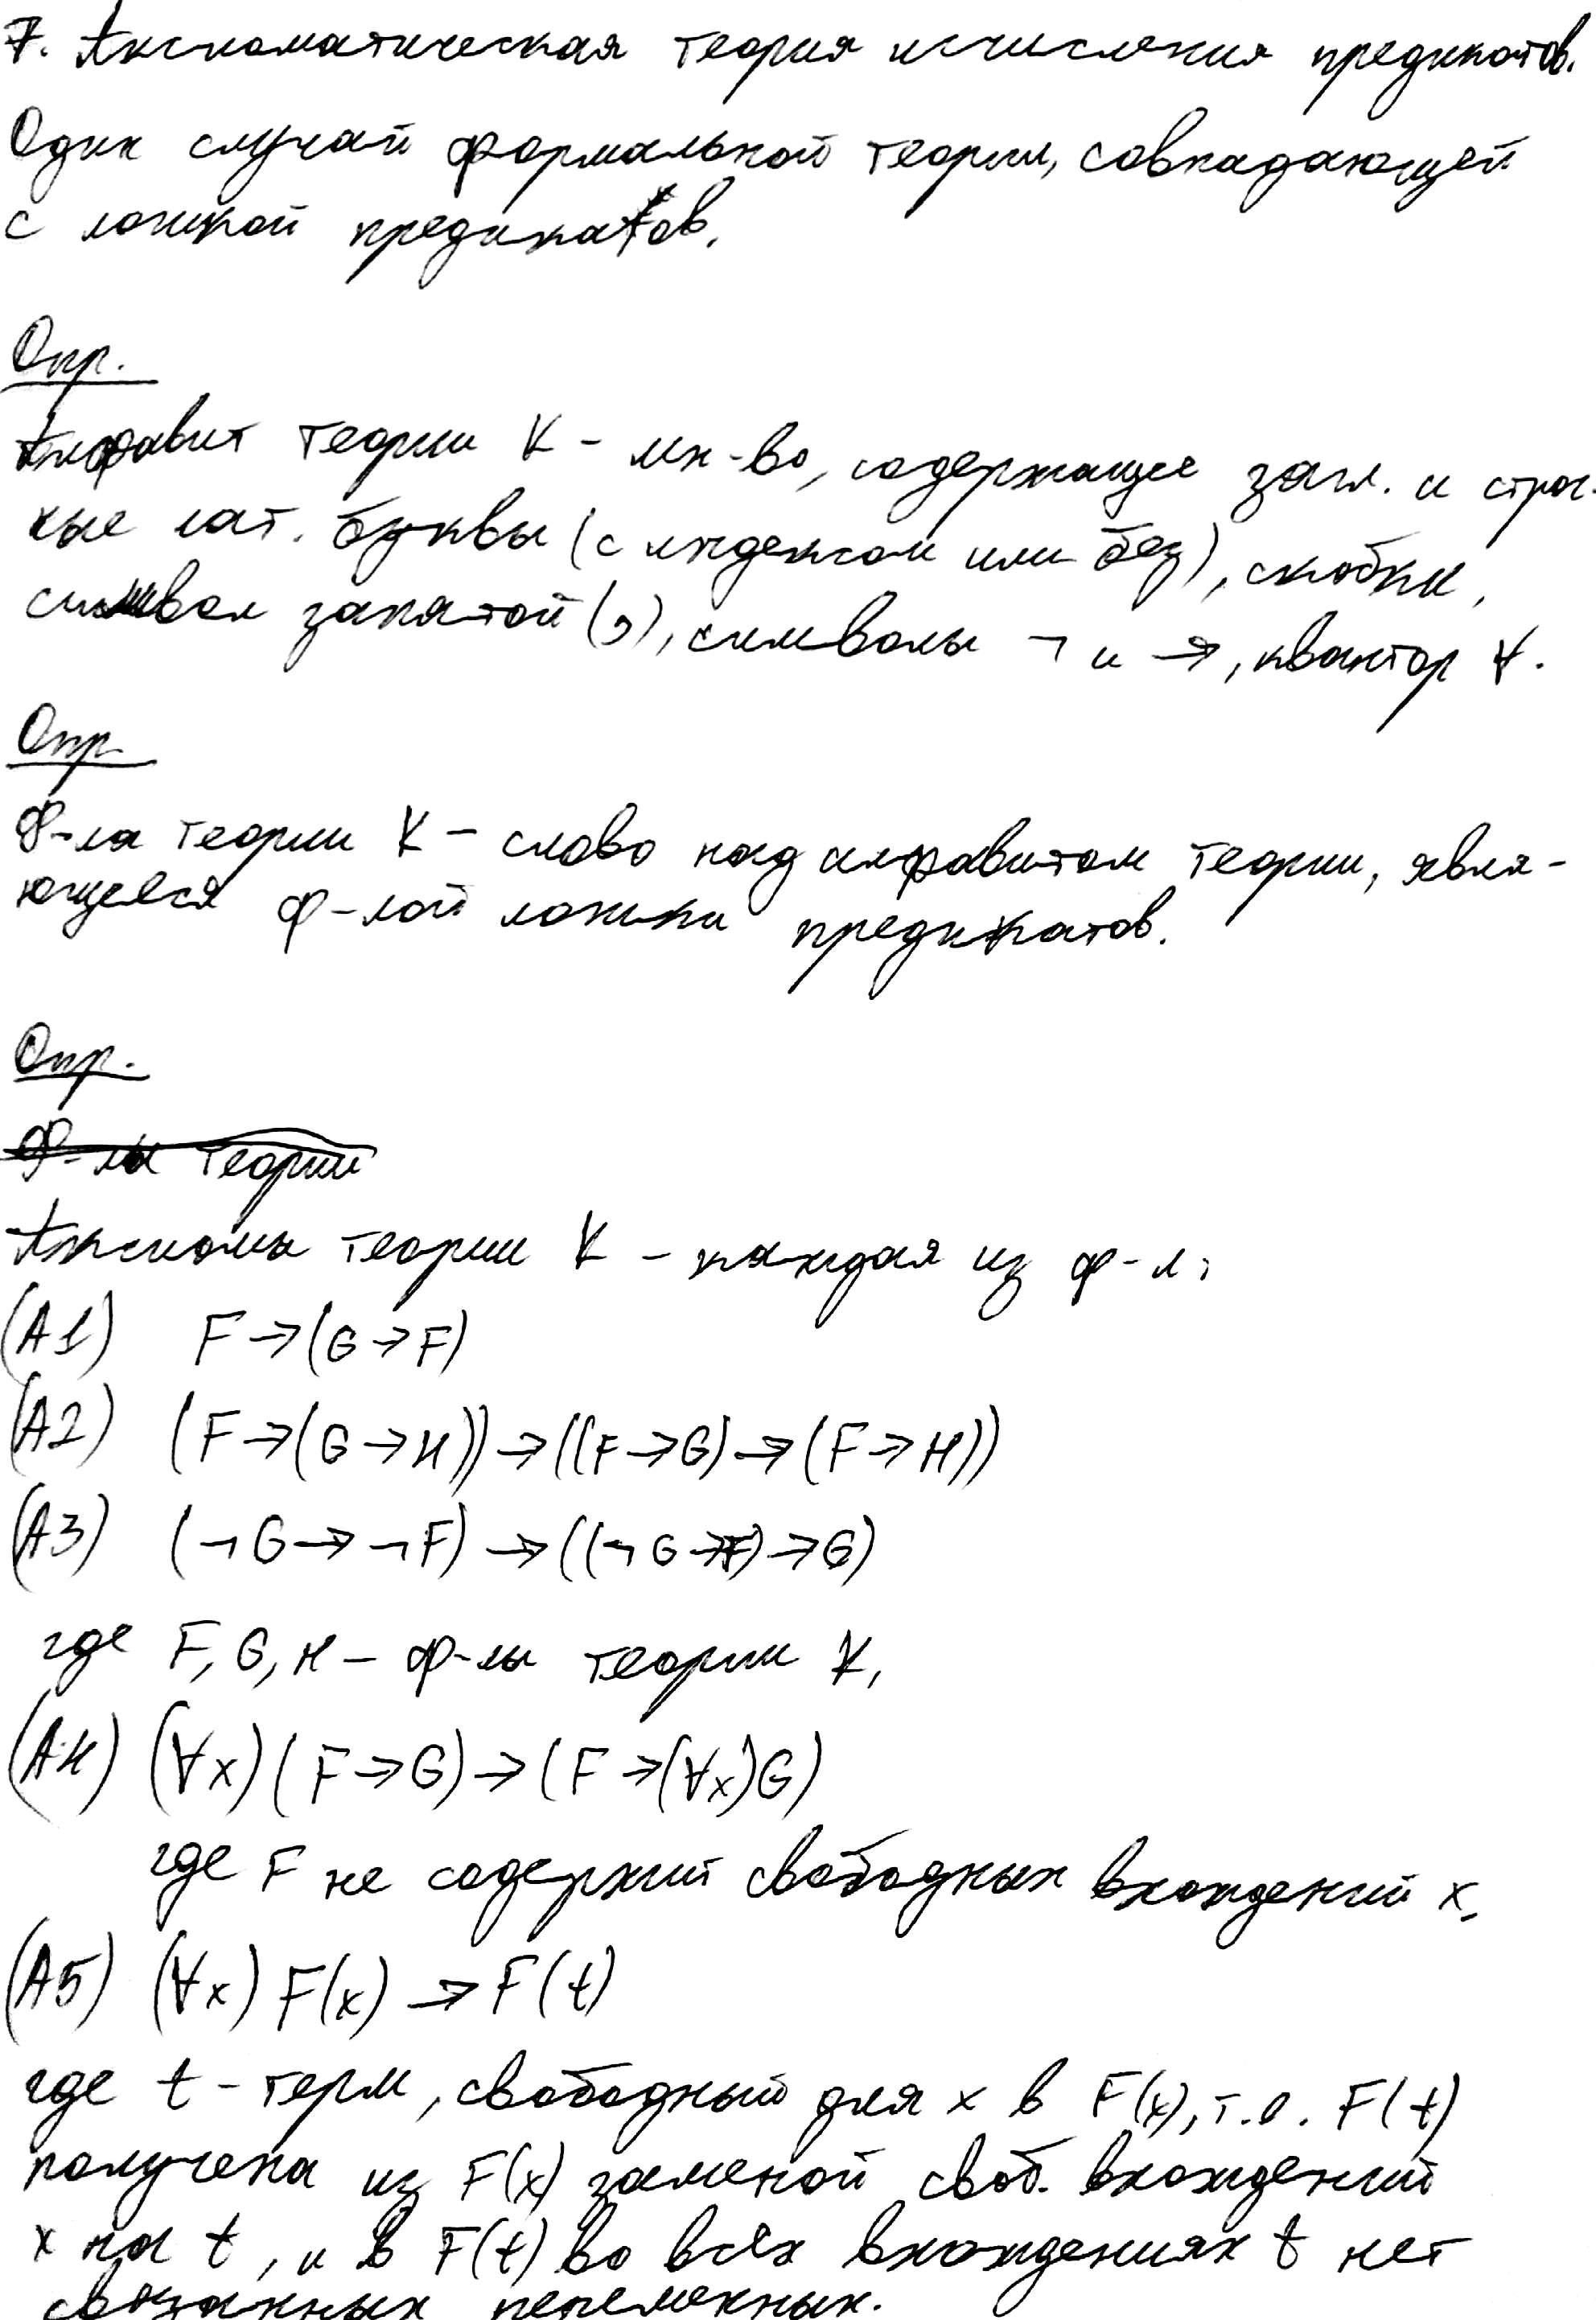 7. Аксиоматическая теория исчисления предикатов.
Один случай формальной теории, совпадающей
с логикой предикатов.
Опр.
Алфавит теории K - мн-во, содержащее загл. и строч-
ные лат. буквы (с индексом или без), скобки,
символ запятой (,), символы ¬ и →, квантор ∀.
Опр.
Ф-ла теории K - слово над алфавитом теории, явля-
ющееся ф-лой логики предикатов.
Опр.
Ф-лы теории
Аксиомы теории K - каждая из ф-л:
(A1) F → (G → F)
(A2) (F → (G → H)) → ((F → G) → (F → H))
(A3) (¬G → ¬F) → ((¬G → F) → G)
где F, G, H - ф-лы теории K,
(A4) (∀x)(F → G) → (F → (∀x)G)
где F не содержит свободных вхождений x,
(A5) (∀x) F(x) → F(t)
где t - терм, свободный для x в F(x), т.е. F(t)
получена из F(x) заменой своб. вхождений
x на t, и в F(t) во всех вхождениях t нет
связанных переменных.